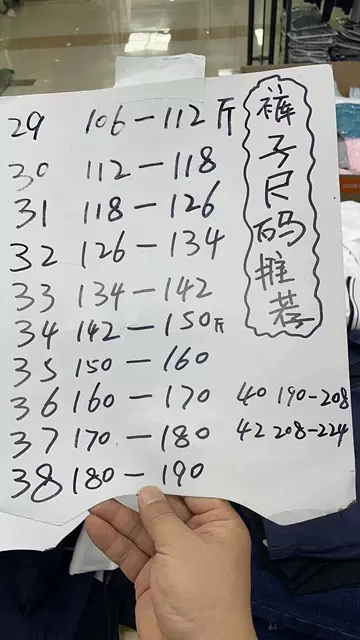 裤子尺码推荐
29 106-112斤
30 112-118
31 118-126
32 126-134
33 134-142
34 142-150斤
35 150-160
36 160-170
37 170-180
38 180-190
40 190-208
42 208-224